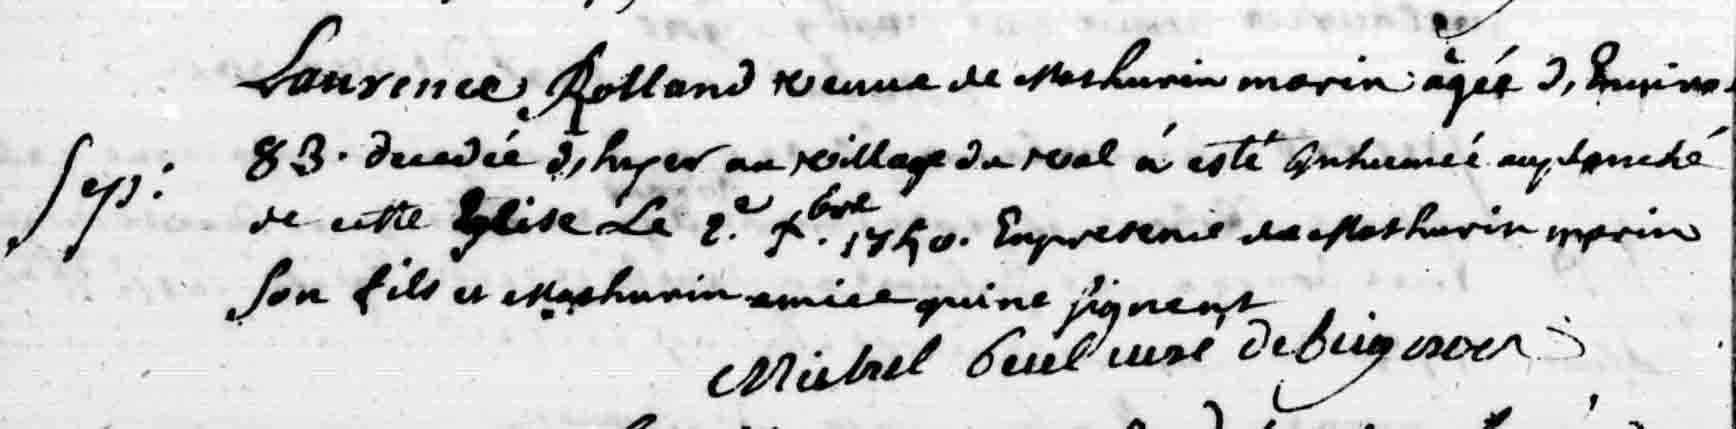 Laurence Rolland veuve de Mathurin morin âgée d'Environ
Sep: 83. decedée d'hyer au village du val á esté Inhumeé au planché
de cette Eglise Le 2.e 7.bre 1750. En presence de Mathurin morin
son fils et Mathurin amice qui ne signent
Michel curé de